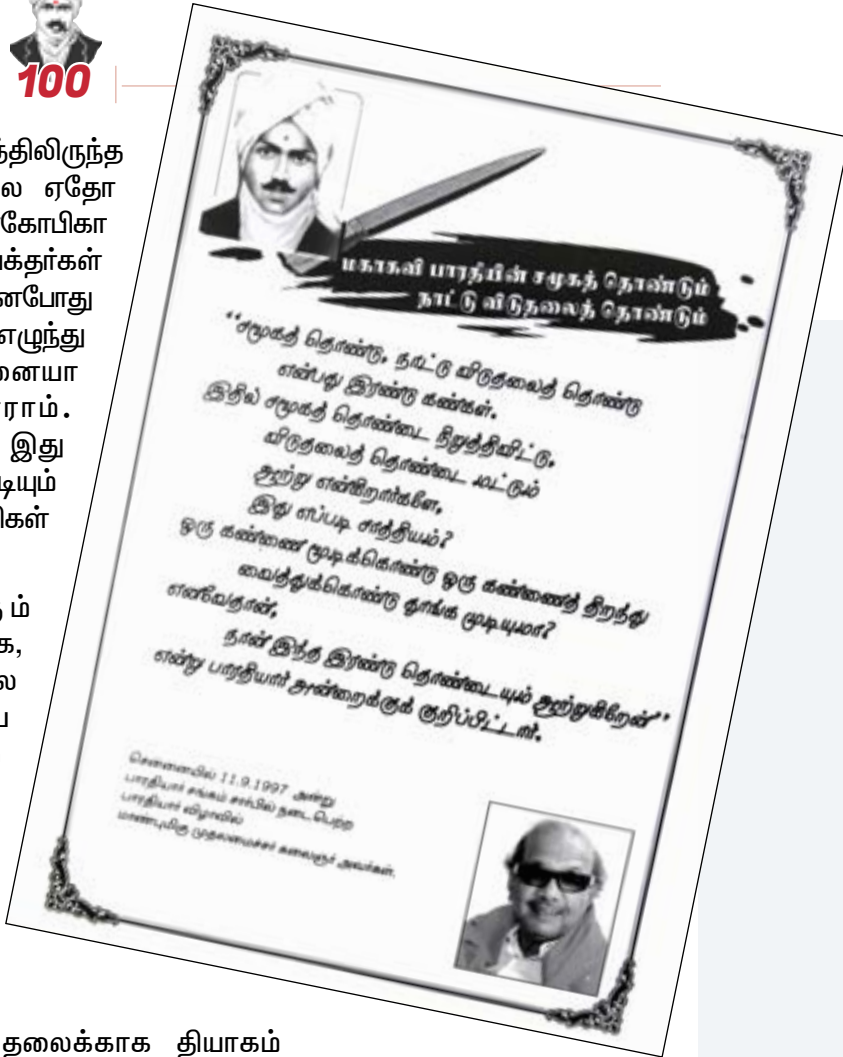 100
த்திலிருந்த
ல ஏதோ
கோபிகா
க்தர்கள்
னபோது
எழுந்து
னையா
ராம்.
இது
டியும்
ிகள்
ும்
க,
ல
தலைக்காக தியாகம்
மகாகவி பாரதியின் சமூகத் தொண்டும்
நாட்டு விடுதலைத் தொண்டும்
‘‘சமூகத் தொண்டு, நாட்டு விடுதலைத் தொண்டு
என்பது இரண்டு கண்கள்.
இதில் சமூகத் தொண்டை நிறுத்திவிட்டு,
விடுதலைத் தொண்டை மட்டும்
ஆற்று என்கிறார்களே,
இது எப்படி சாத்தியம்?
ஒரு கண்ணை மூடிக்கொண்டு ஒரு கண்ணைத் திறந்து
வைத்துக்கொண்டு தூங்க முடியுமா?
எனவேதான்,
நான் இந்த இரண்டு தொண்டையும் ஆற்றுகிறேன்’’
என்று பாரதியார் அன்றைக்குக் குறிப்பிட்டார்.
சென்னையில் 11.9.1997 அன்று
பாரதியார் சங்கம் சார்பில் நடைபெற்ற
பாரதியார் விழாவில்
மாண்புமிகு முதலமைச்சர் கலைஞர் அவர்கள்.